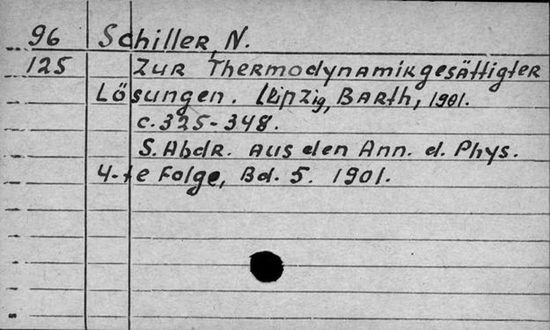 96 Schiller, N.
125 Zur Thermodynamik gesättigter
Lösungen. Leipzig, Barth, 1901.
c. 325-348.
S. Abdr. aus den Ann. d. Phys.
4-te Folge, Bd. 5. 1901.